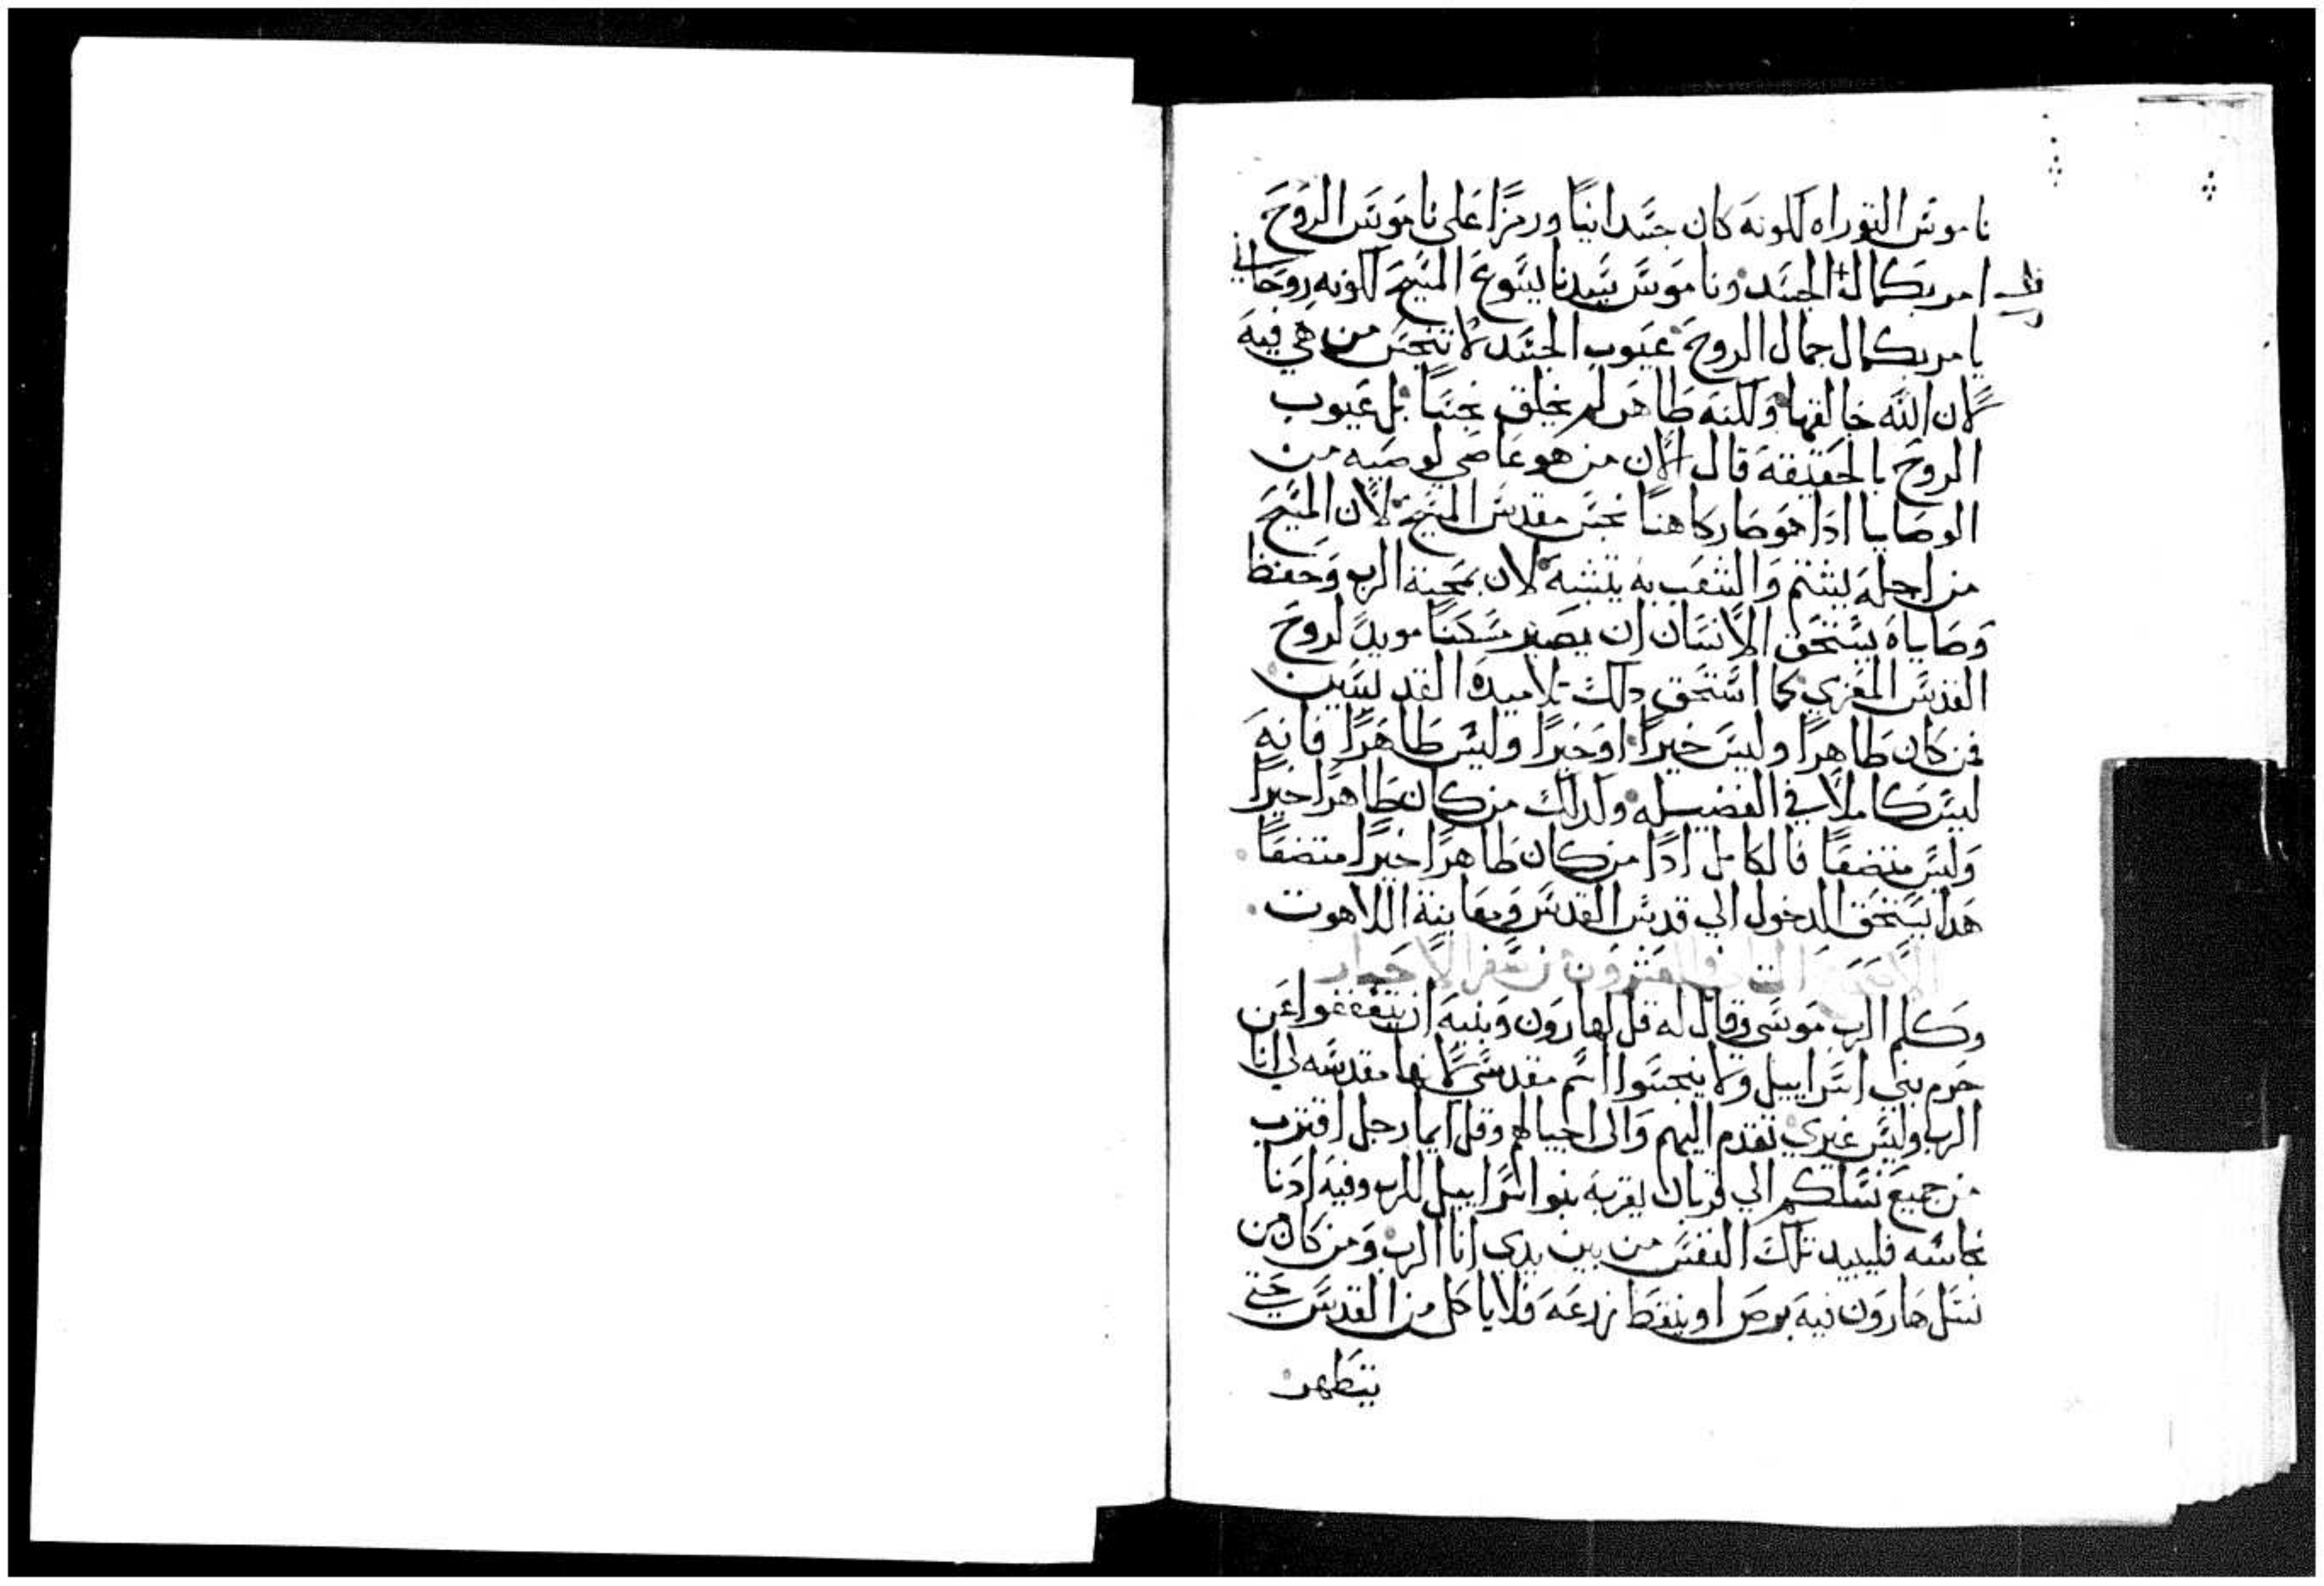 ناموس التوراه لكونه كان جسدانيًا ورمزًا على ناموس الروح
امر بكمال الجسد وناموس سيدنا يسوع المسيح لكونه روحاني
يامر بكمال جمال الروح عيوب الجسد لا تنجس من هي فيه
لان الله خالقها ولكنه طاهر لم يخلق نجسًا بل عيوب
الروح بالحقيقة قال الان من هو عاصي لوصيه من
الوصايا ادا هو صار كاهنا نجس مقدس المسيح لان المسيح
من اجله يشتم والشعب به يتشبه لان بمحبة الرب وحفظ
وصاياه يستحق الانسان ان يصير مسكنًا موبدً لروح
القدس المعزي كما استحق دلك تلاميده القديسين
فمن كان طاهرًا وليس خيرًا او خيرًا وليس طاهرًا فانه
ليس كاملًا في الفضيله ولدلك من كان طاهرًا خيرًا
وليس متضعًا فالكامل ادًا من كان طاهرًا خيرًا متضعًا
هدا يستحق الدخول الي قدس القدس ومعاينة اللاهوت
والعشرون سفر الاحبار
وكلم الرب موسى وقال له قل لهارون وبنيه ان يتعففوا عن
حرم بني اسراييل ولا ينجسوا اسم مقدسي لانها مقدسه لي انا
الرب وليس غيري تقدم اليهم والى اجيالهم وقل ايما رجل اقترب
من جميع نسلكم الي قربان يقربه بنو اسراييل للرب وفيه ادنا
نجاسه فليبيد تلك النفس من بين يدي انا الرب ومن كان من
نسل هارون فيه برص او ينقط زرعه فلا ياكل من القدس حتي
يتطهر